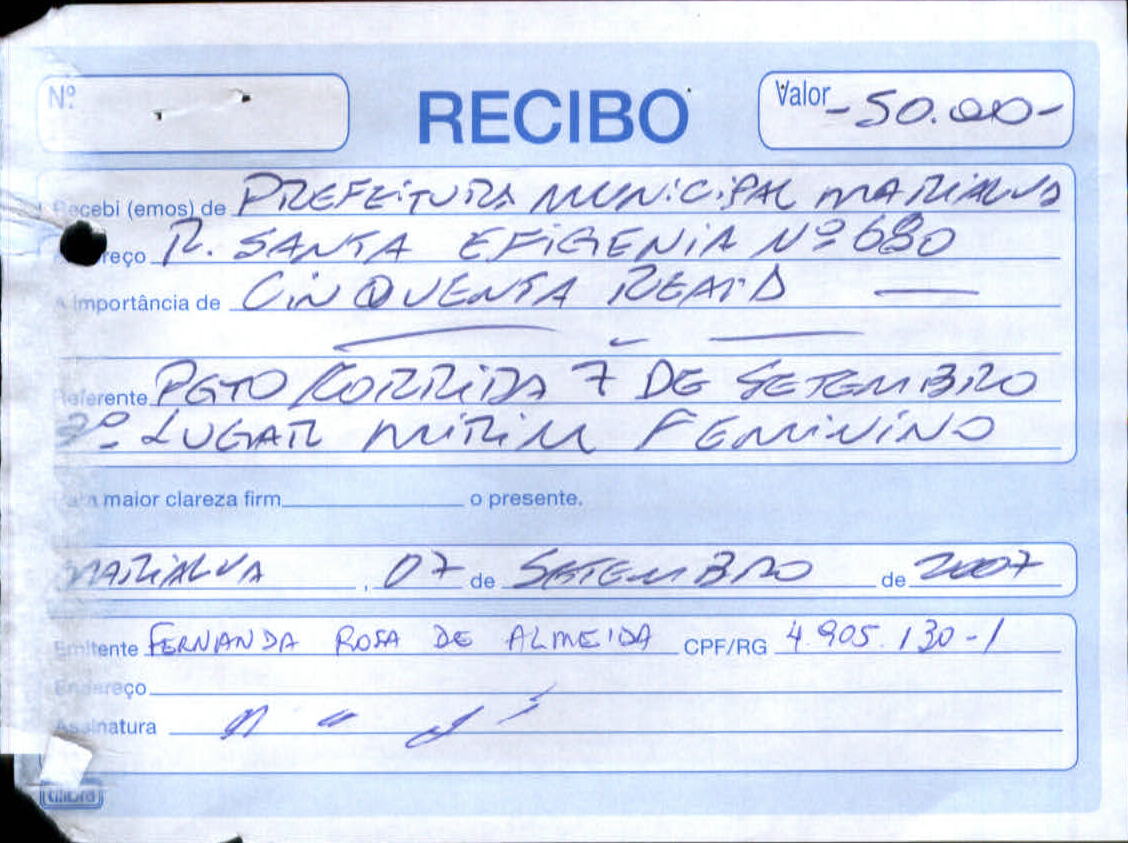 Nº
RECIBO
Valor -50.00-
Recebi (emos) de PREFEITURA MUNICIPAL MARIALVA
reço R. SANTA EFIGENIA Nº 680
A importância de CINQUENTA REAIS
Referente PGTO CORRIDA 7 DE SETEMBRO
LUGAR MIRIM FEMININO
Para maior clareza firm o presente.
MARIALVA, 07 de SETEMBRO de 2007
Emitente FERNANDA ROSA DE ALMEIDA CPF/RG 4.905.130-1
Endereço
Assinatura
tilibra